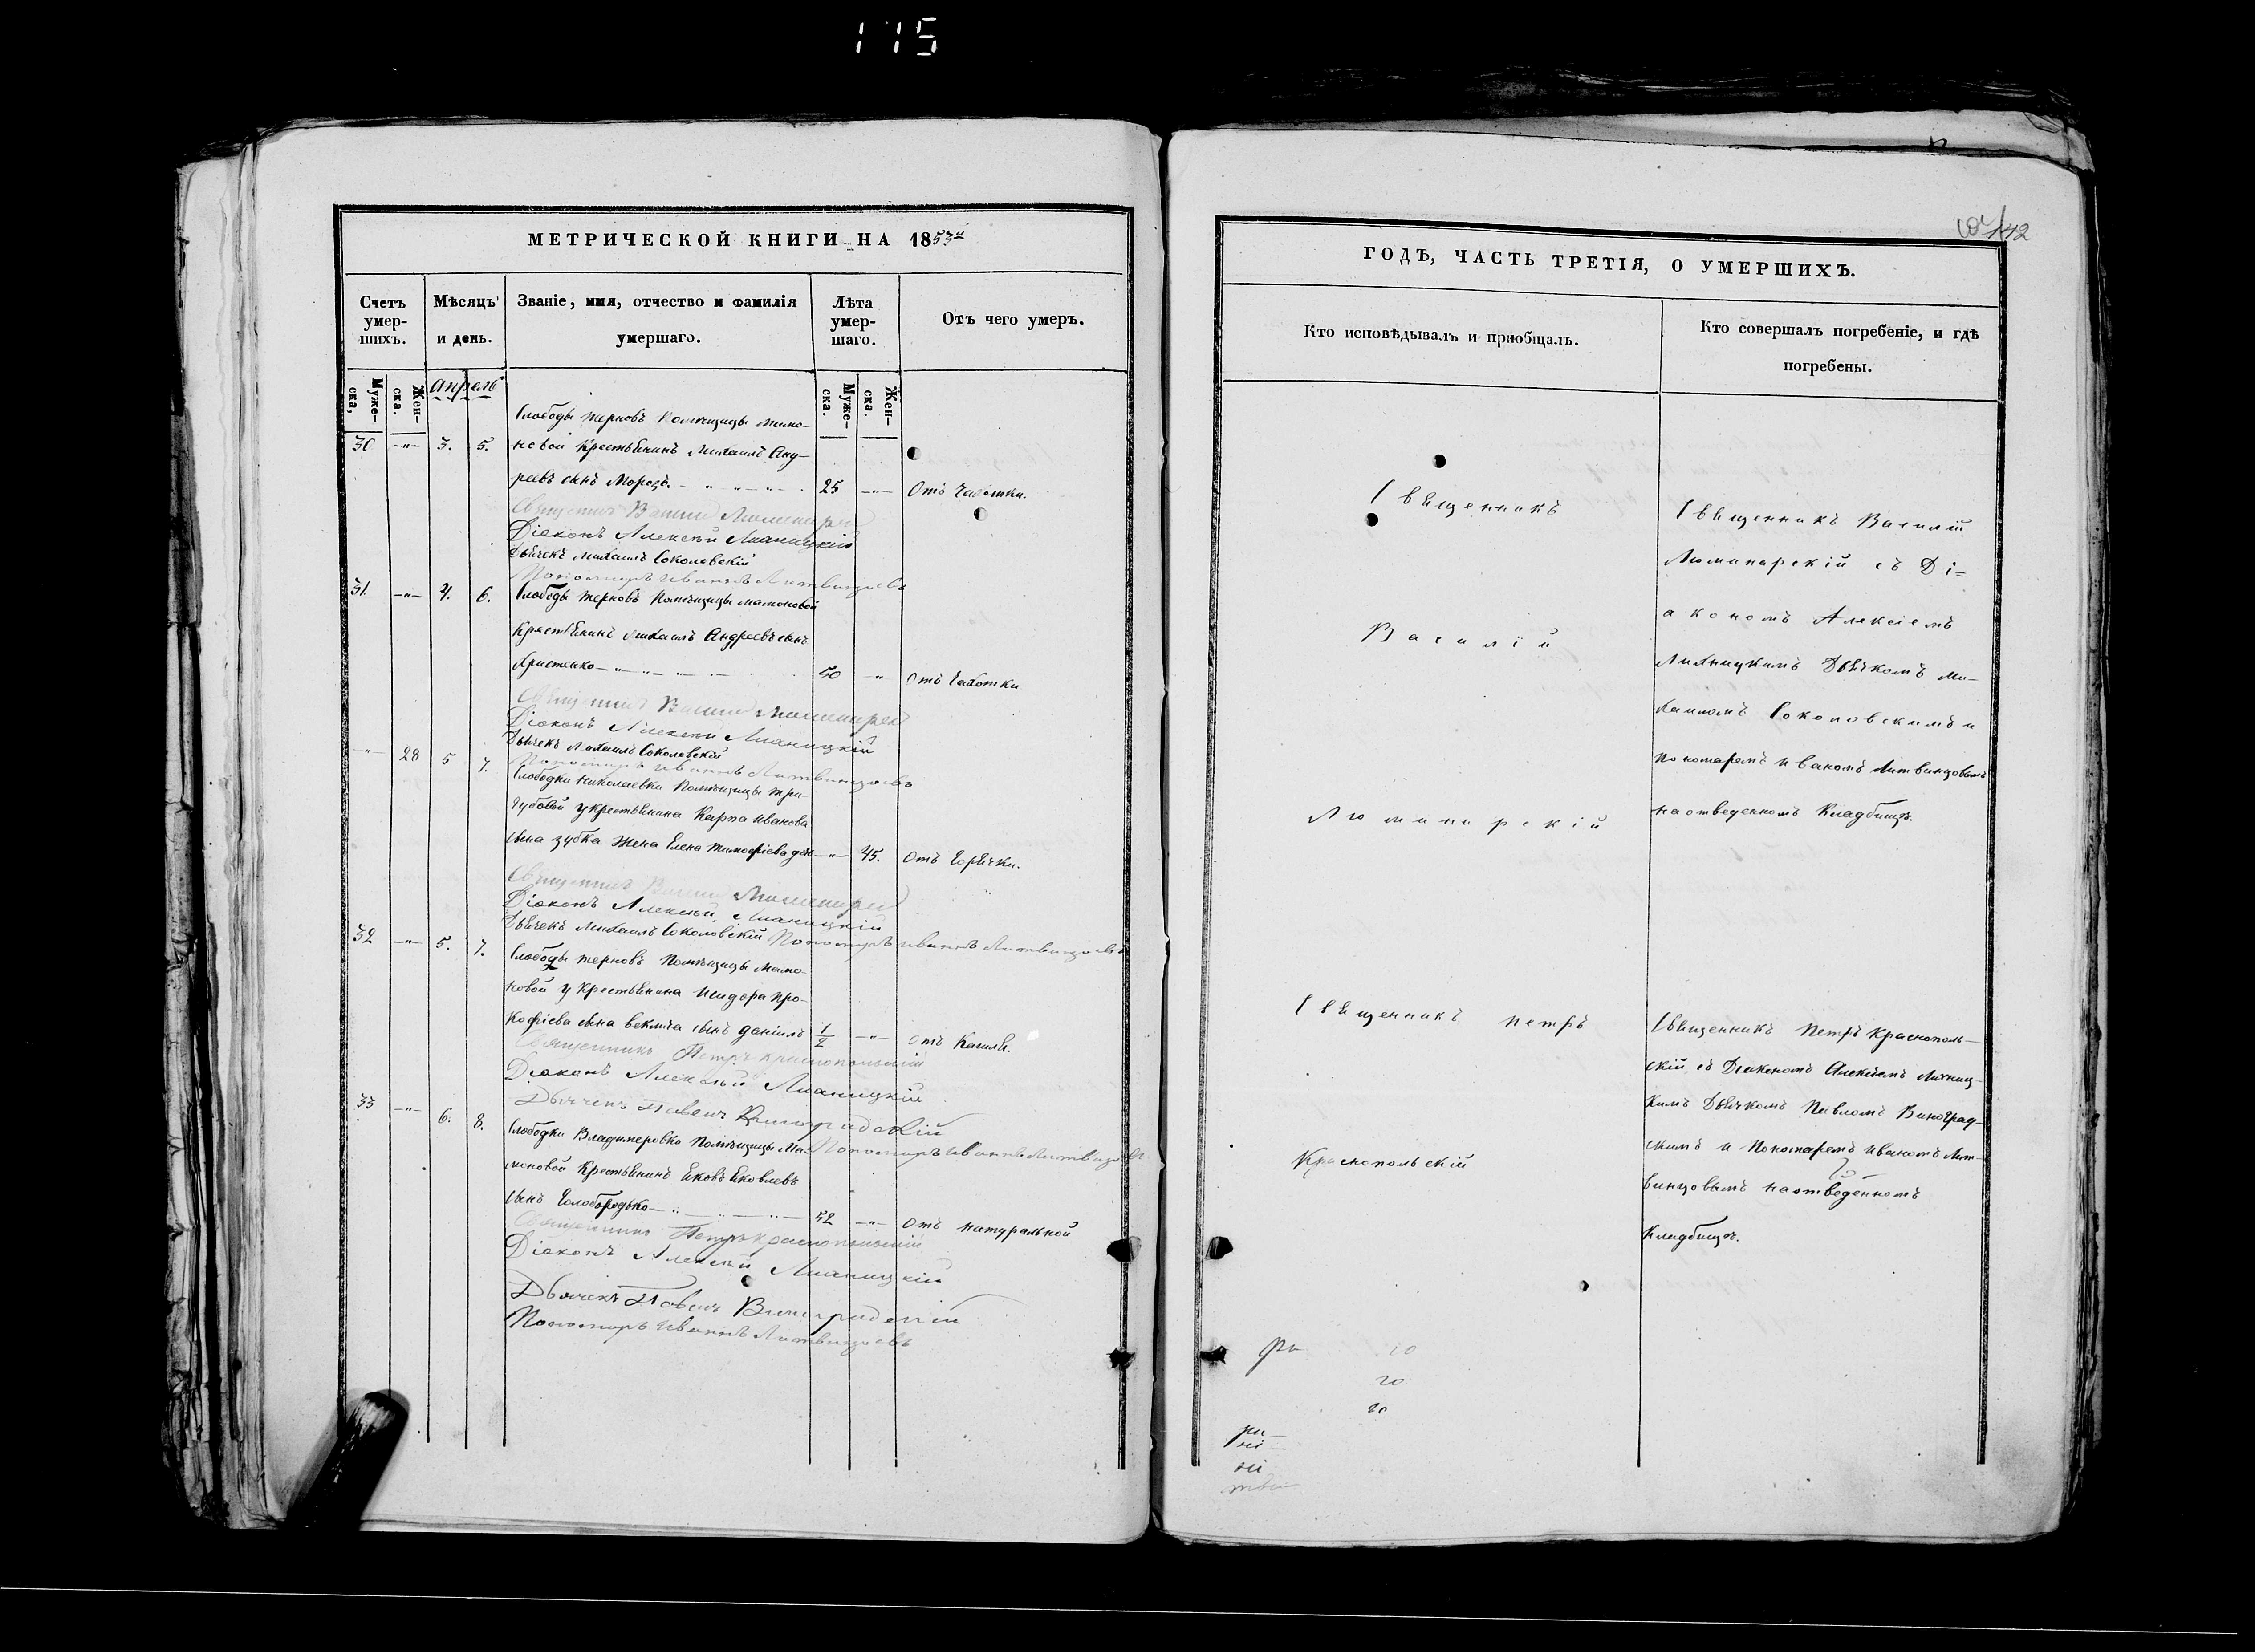 115
МЕТРИЧЕСКОЙ КНИГИ НА 1853й
Счетъ умер-шихъ.
Мѣсяцъ и день.
Званіе, имя, отчество и фамилія умершаго.
Лѣта умер-шаго.
Отъ чего умеръ.
Муже-ска,
Жен-ска.
Апрель
Муже-ска.
Жен-ска.
Слободы Терновъ Помѣщицы Мамо-
30 -"- 3. 5. новой Крестьянинъ Михаилъ Анд-
реевъ сынъ Морозъ 25 -"- Отъ Чахотки.
Священникъ Василій Люминарскій
Діаконъ Алексѣй Лианицкій
Дьячекъ Михаилъ Соколовскій
Пономарь Иванъ Литвинцовъ
31. -"- 4. 6. Слободы Терновъ Помѣщицы Мамоновой
Крестьянинъ Михаилъ Андреевъ сынъ
Христенко 50 -"- Отъ Чахотки
Священникъ Василій Люминарскій
Діаконъ Алексѣй Лианицкій
Дьячекъ Михаилъ Соколовскій
Пономарь Иванъ Литвинцовъ
-"- 28 5 7. Слободки Николаевки Помѣщицы Три-
губовой у Крестьянина Карпа Иванова
сына Зубка Жена Елена Тимофіева доч -"- 45. Отъ Горячки.
Священникъ Василій Люминарскій
Діаконъ Алексѣй Лианицкій
Дьячекъ Михаилъ Соколовскій Пономарь Иванъ Литвинцовъ
32 -"- 5. 7. Слободы Терновъ Помѣщицы Мамо-
новой у Крестьянина Исидора Про-
кофіева сына Веклича сынъ Даніилъ 1/2 -"- отъ Кашля.
Священникъ Петръ Краснопольскій
Діаконъ Алексѣй Лианицкій
Дьячекъ Павелъ Виноградскій
33 -"- 6. 8. Слободки Владимеровки Помѣщицы Ма- Пономарь Иванъ Литвинцовъ
моновой Крестьянинъ Яковъ Яковлевъ
сынъ Голобородько 52 -"- Отъ натуральной
Священникъ Петръ Краснопольскій
Діаконъ Алексѣй Лианицкій
Дьячекъ Павелъ Виноградскій
Пономарь Иванъ Литвинцовъ
142
ГОДЪ, ЧАСТЬ ТРЕТІЯ, О УМЕРШИХЪ.
Кто исповѣдывалъ и пріобщалъ.
Кто совершалъ погребеніе, и гдѣ погребены.
Священникъ
Василій
Люминарскій
Священникъ Василій
Люминарскій съ Ді=
акономъ Алексіемъ
Лихницкимъ Дьячкомъ Ми-
хаиломъ Соколовскимъ и
Пономаремъ Иваномъ Литвинцовымъ
на отведенномъ Кладбищѣ.
Священникъ Петръ
Краснопольскій
Священникъ Петръ Краснополь-
скій съ Діакономъ Алексіемъ Лихниц-
кимъ Дьячкомъ Павломъ Виноград-
скимъ и Пономаремъ Иваномъ Лит-
винцовымъ на отведенномъ
Кладбищѣ.
20